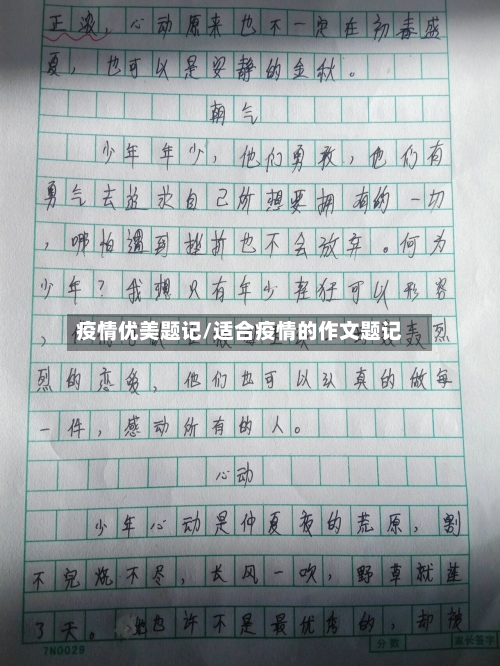 正浓，心动原来也不一定在初春盛
夏，也可以是安静的金秋。
朝气
少年年少，他们勇敢，他们有
勇气去追求自己所想要拥有的一切
，哪怕遇到挫折也不会放弃。何为
少年？我想只有年少轻狂可以形容
疫情优美题记/适合疫情的作文题记
轰烈
烈的恋爱，他们也可以认真的做每
一件，感动所有的人。
心动
少年心动是仲夏夜的荒原，割
不完烧不尽，长风一吹，野草就连
了天。他也许不是最优秀的，却被
7N0029
分数
家长签字